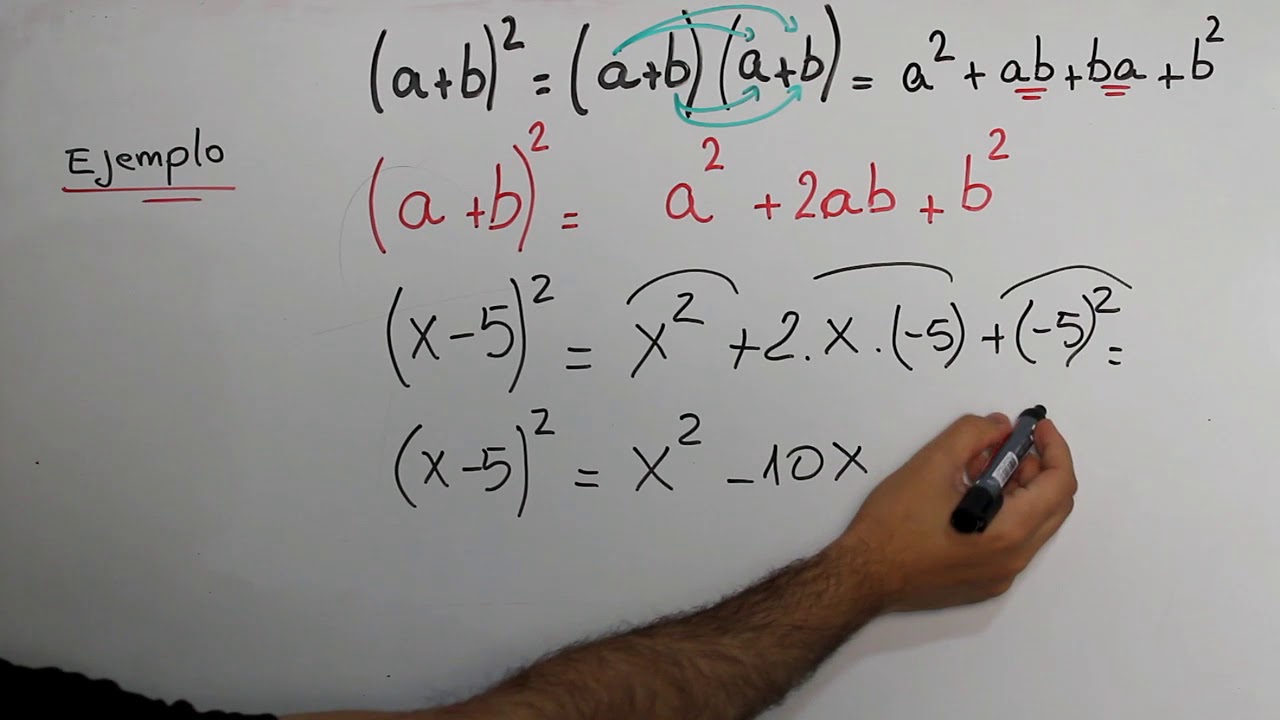 (a+b)² = (a+b)(a+b) = a² + ab + ba + b²
Ejemplo
(a+b)² = a² + 2ab + b²
(x-5)² = x² + 2.x.(-5) + (-5)² =
(x-5)² = x² - 10x